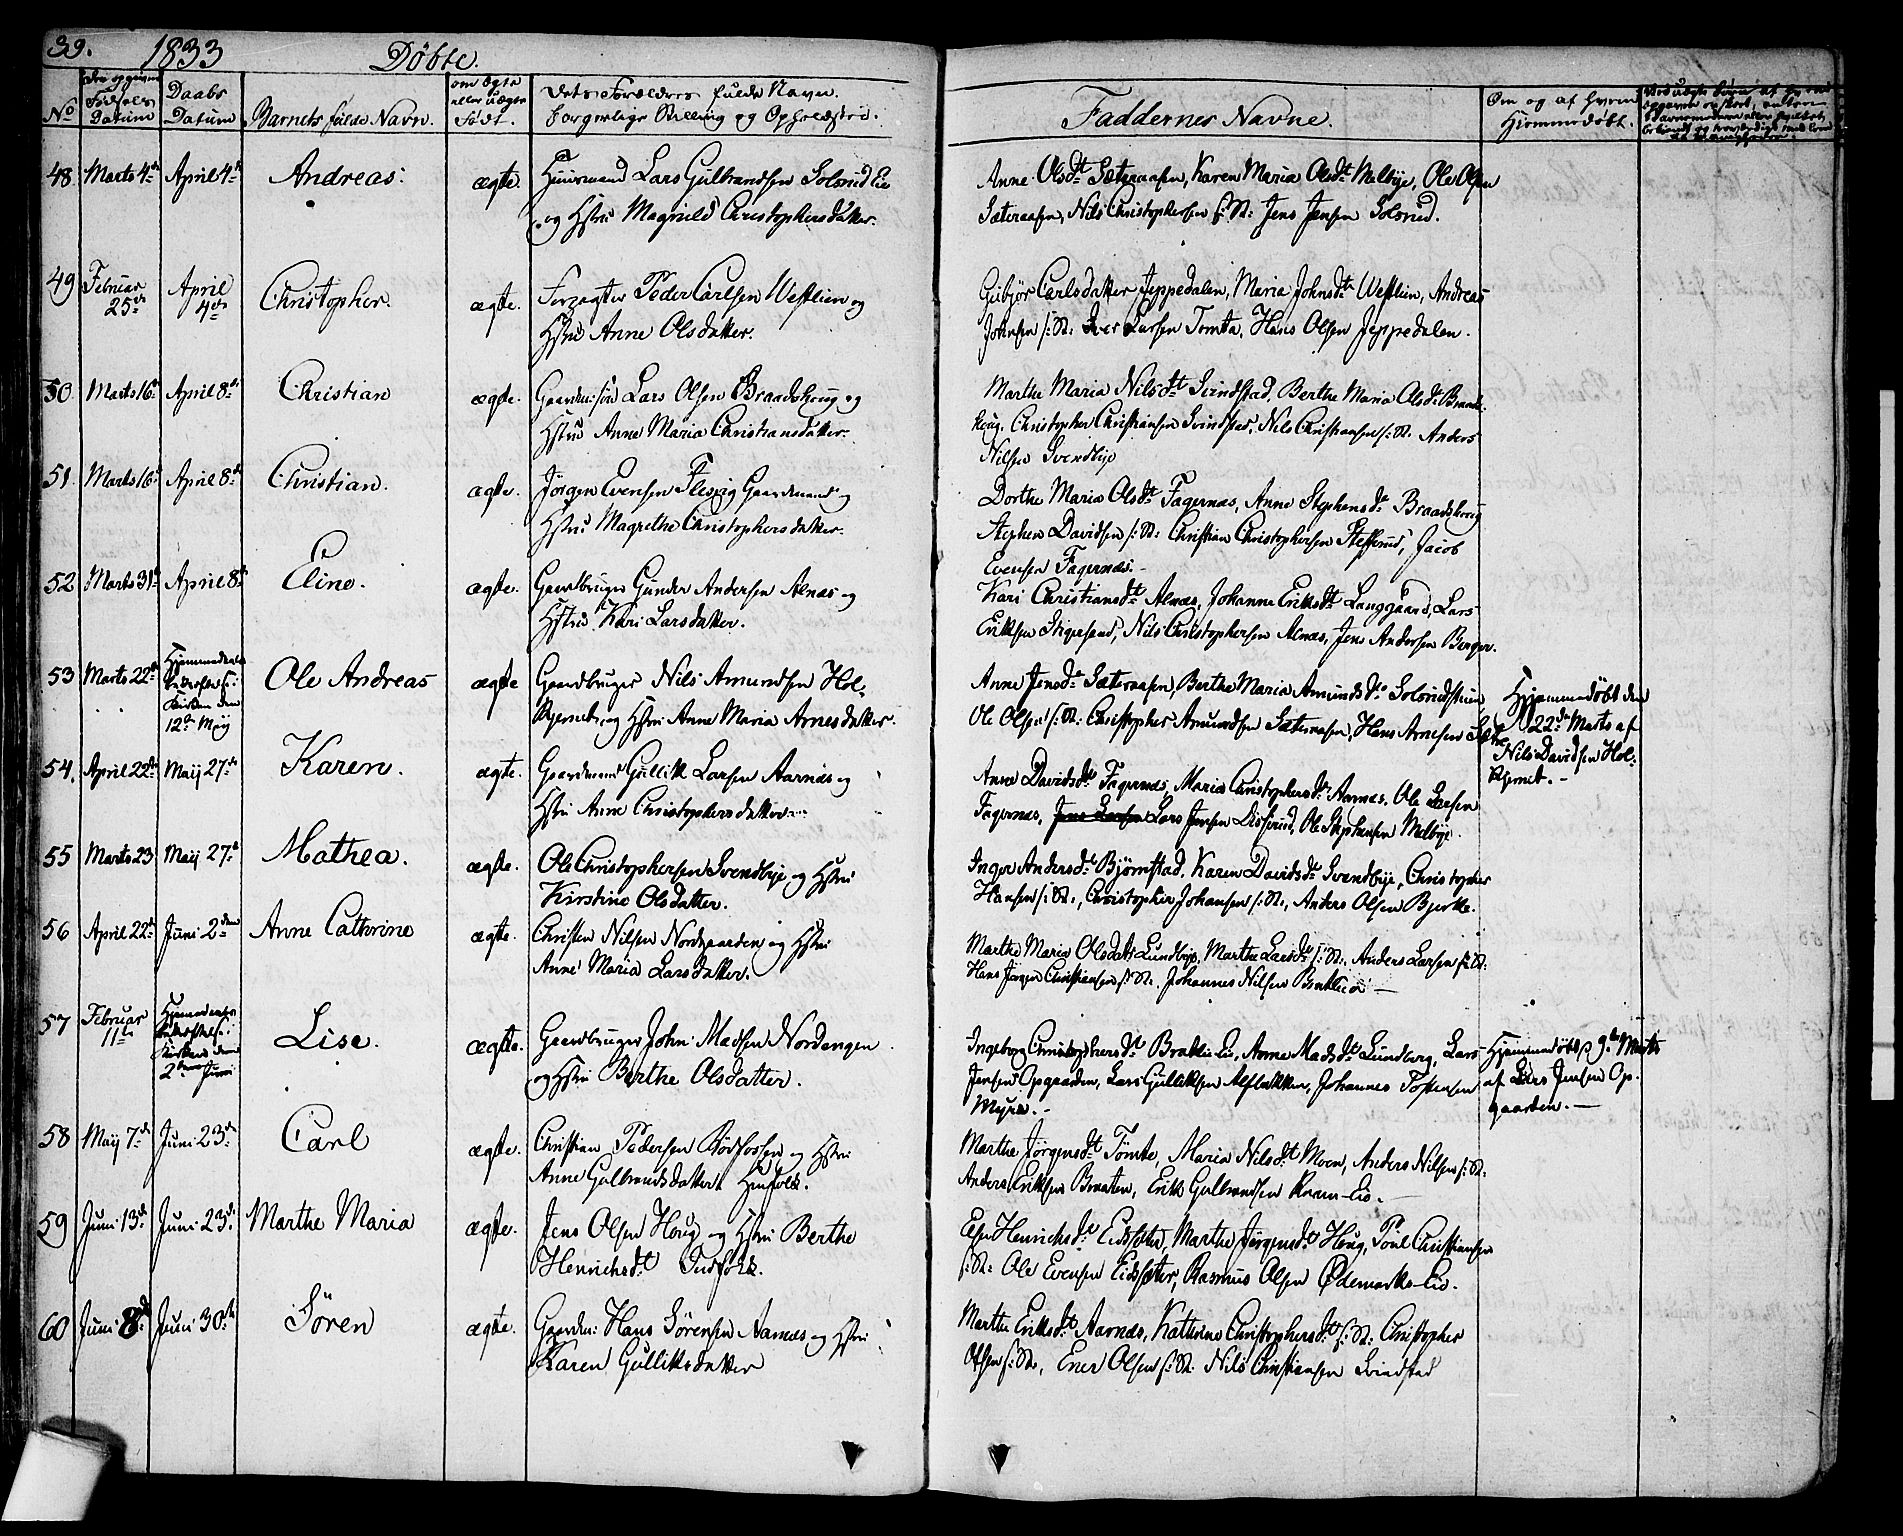 39. 1833 Döbte.
No
Den opgivne Födsels Datum
Daabs Datum
Barnets fulde Navn.
om ægte eller uægte födt.
Dets Forældres fulde Navn. borgerlige Stilling og Opholdsted.
Faddernes Navne.
Om og af hvem Hjemmedöbt.
48 Marts 4de April 4de Andreas. ægte. Huusmand Lars Gulbrandsen Solsrud Eie
og Hstru Magnild Christophersdatter.
Anne Olsdt Sæteraasen, Karen Maria Olsdt Melbye, Ole Olsen
Sæteraasen, Nils Christophersen /:St: Jens Jensen Solsrud.
49 Februar 25de April 4de Christopher. ægte. Forpagter Peder Carlsen Westlien og
Hstru Anne Olsdatter.
Gubjör Carlsdatter Jeppedalen, Maria Johnsdt Westlien, Andreas
Johnsen /:St: Iver Larsen Tomta, Hans Olsen Jeppedalen.
50. Marts 16de April 8de Christian ægte. Gaardm:sön Lars Olsen Braadshoug og
Hstru Anne Maria Christiansdatter.
Marthe Maria Nilsdt Svindstad, Berthe Maria Olsdt Braads-
houg. Christopher Christiansen Svindstad, Nils Christiansen /:St. Anders
Nilsen Svendbye
51. Marts 16de April 8de Christian. ægte. Jörgen Evensen Flesvig Gaardmand og
Hstru Magrethe Christophersdatter.
Dorthe Maria Olsdt Fagernæs, Anne Stephensdt Braadshoug
Stephen Davidsen /:St: Christian Christophersen Steffensrud, Jacob
Evensen Fagernæs.
52 Marts 31te April 8de Eline. ægte. Gaardbruger Gunder Andersen Alnæs og
Hstru Kari Larsdatter.
Kari Christiansdt Alnæs, Johanne Eriksdt Langgaard, Lars
Eriksen Stigersand, Nils Christophersen Alnæs, Jens Andersen Berger.
53 Marts 22de Kirken den
12te Maij Ole Andreas ægte Gaardbruger Nils Amundsen Hol-
kjernet og Hstru Anne Maria Arnesdatter.
Anne Jensdt Sæteraasen, Berthe Maria Amundsdt Solsrudstuen,
Ole Olsen /:St: Christopher Amundsen Sæteraasen, Hans Arnesen
Hjemmedöbt den
22de Marts af
Nils Davidsen Hol-
kjernet.
54. April 22de Maij 27de Karen. ægte. Gaardmand Gullik Larsen Aarnæs og
Hstru Anne Christophersdatter.
Anne Davidsdt Fagernæs, Maria Christophersdt Aarnæs, Ole Larsen
Fagernæs, Jens Larsen Lars Jensen Disserud, Ole Stephensen Melbye.
55 Marts 23 Maij 27de Mathea. ægte. Ole Christophersen Svendbye og Hstru
Kirstine Olsdatter.
Inger Andersdt Björnstad, Karen Davidsdt Svendbye, Christopher
Hansen /:St:, Christopher Johansen /:St:, Anders Olsen Bjerke.
56 April 22de Juni 2den Anne Cathrine ægte. Christen Nilsen Nordgaarden og Hstru
Anne Maria Larsdatter.
Marthe Maria Olsdatt Lundbye, Marthe Larsdt /:St:, Anders Larsen /:St:
Hans Jörgen Christiansen /:St:. Johannes Nilsen
57 Februar 11te Kirken den
2den Juni Lise. ægte. Gaardbruger John Madsen Nordengen
og Hstru Berthe Olsdatter.
Ingeborg Christophersdt Braklie Eie, Anne Madsdt Lundberg, Lars
Jensen Opgaarden, Lars Gulliksen Alfstakken, Johannes Tostensen
Myra.
Hjemmedöbt 9de Marts
af Lars Jensen Op-
gaarden.
58 Maij 7de Juni 23de Carl ægte. Christian Pedersen Rödfossen og Hstru
Anne Gulbrandsdatter
Marthe Jörgensdt Tömte, Maria Nilsdt Moen, Anders Nilsen /:St.
Anders Eriksen Braaten, Erik Gulbrandsen Raam-Eie.
59 Juni 13de Juni 23de Marthe Maria ægte. Jens Olsen Houg og Hstru Berthe
Henrichsdt
Else Henrichsdt Eidssæter, Marthe Jörgensdt Houg, Poul Christiansen
/:St: Ole Evensen Eidssæter, Rasmus Olsen Ödemarks-Eie.
60 Juni 8de Juni 30te Sören ægte. Gaardm: Hans Sörensen Aarnæs og Hstru
Karen Gulliksdatter
Marthe Eriksdt Aarnæs, Kathrine Christophersdt /:St: Christopher
Olsen /:St:, Ener Olsen /:St: Nils Christiansen Svindstad